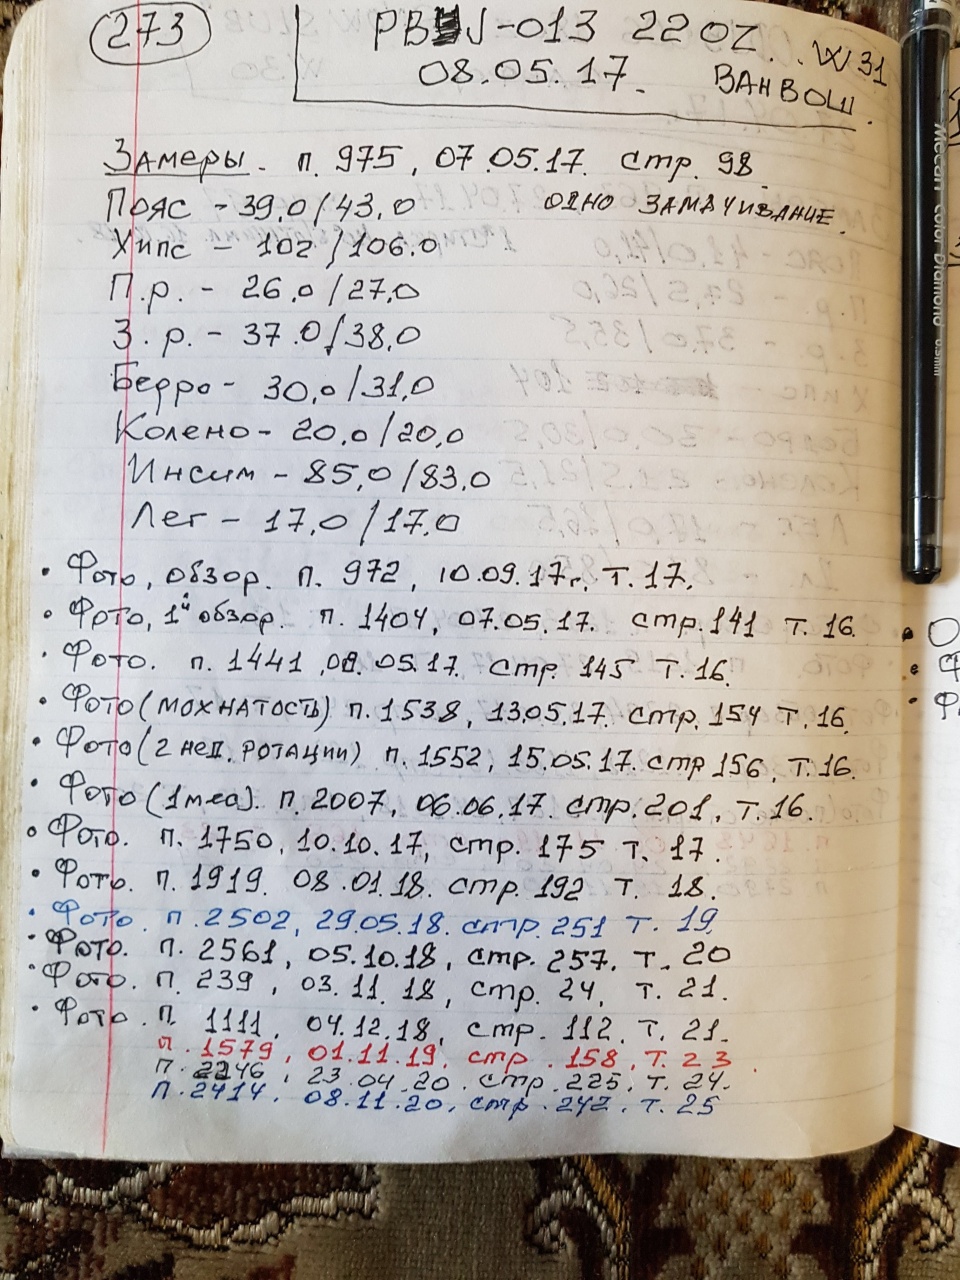 273
PBJ-013 22OZ. W31
08.05.17. ВАНВОШ.
Замеры. п. 975, 07.05.17. стр. 98.
Пояс - 39,0/43,0 ОДНО ЗАМАЧИВАНИЕ.
Хипс - 102/106.0
П.р. - 26,0/27,0
З.р. - 37.0/38,0
Бедро - 30,0/31,0
Колено - 20,0/20,0
Инсим - 85,0/83,0
Лег - 17,0/17,0
• Фото, обзор. п. 972, 10.09.17г. Т.17.
• Фото, 1й обзор. п. 1404, 07.05.17. стр.141 т.16.
• Фото. п.1441, 08.05.17. стр. 145 т.16.
• Фото (МОХНАТОСТЬ) п.1538, 13.05.17. стр.154 т.16.
• Фото (2 нед. РОТАЦИИ) п.1552, 15.05.17. стр 156, т.16.
• Фото (1 мес). п.2007, 06.06.17. стр.201, т.16.
• Фото. п.1750, 10.10.17, стр. 175 т.17.
• Фото. п.1919. 08.01.18. стр. 192 т.18.
• Фото. п.2502, 29.05.18. стр. 251 т. 19.
• Фото. п.2561, 05.10.18, стр. 257. т. 20
• Фото. п. 239, 03.11.18, стр. 24, т. 21.
• Фото. п. 1111, 04.12.18, стр. 112. т. 21.
п. 1579, 01.11.19. стр. 158, т. 23.
п. 2246, 23.04.20. стр. 225, т. 24.
п. 2414. 08.11.20. стр. 242. т. 25
McCan Color Diamond 0.5mm